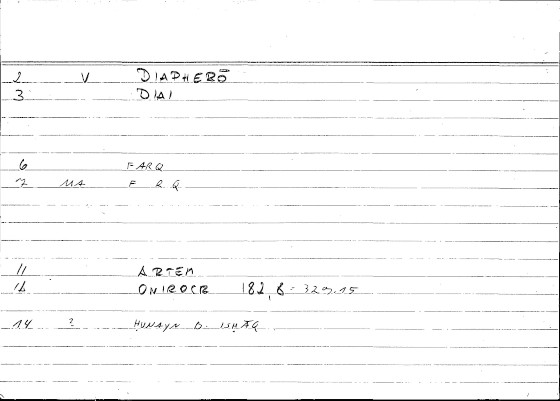 2 V DIAPHERŌ
3 DIAI
6 FARQ
7 MA F R Q
11 ARTEM
12 ONIROCR 182,8 = 329.15
14 ? HUNAYN B. ISHĀQ